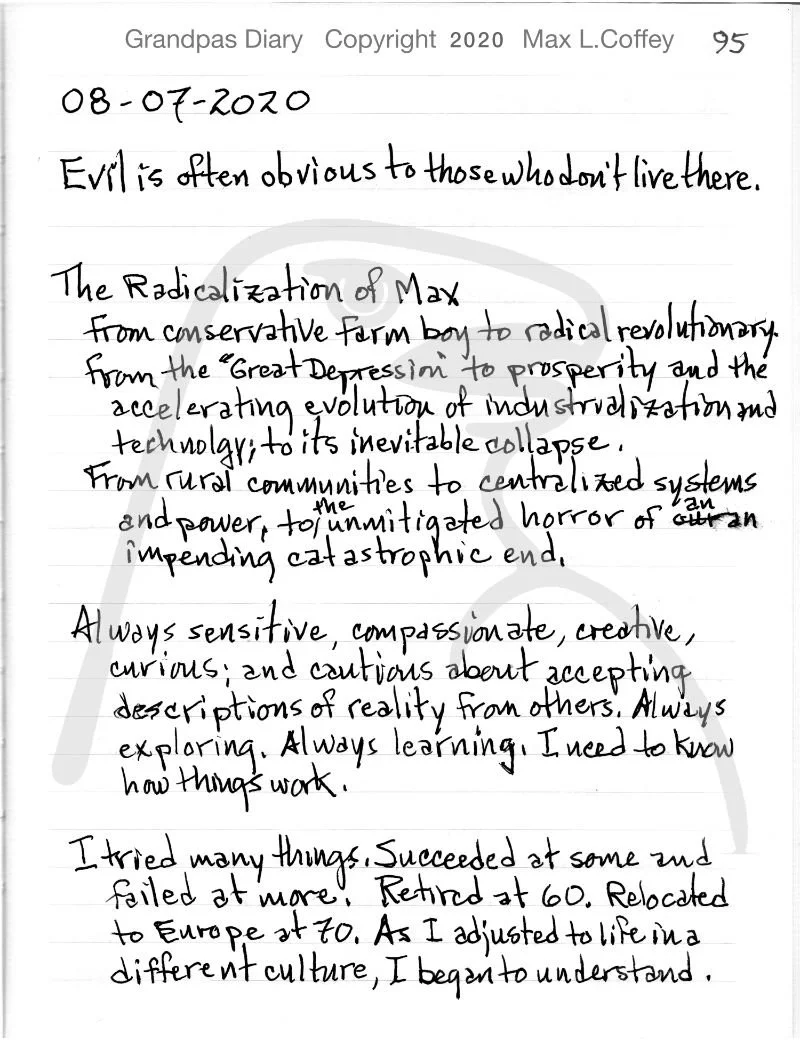 Grandpas Diary Copyright 2020 Max L.Coffey 95
08-07-2020
Evil is often obvious to those who don't live there.
The Radicalization of Max
From conservative farm boy to radical revolutionary.
From the "Great Depression" to prosperity and the
accelerating evolution of industrialization and
technolgy; to its inevitable collapse.
From rural communities to centralized systems
and power, to the unmitigated horror of an
impending catastrophic end.
Always sensitive, compassionate, creative,
curious; and cautious about accepting
descriptions of reality from others. Always
exploring. Always learning. I need to know
how things work.
I tried many things. Succeeded at some and
failed at more. Retired at 60. Relocated
to Europe at 70. As I adjusted to life in a
different culture, I began to understand.